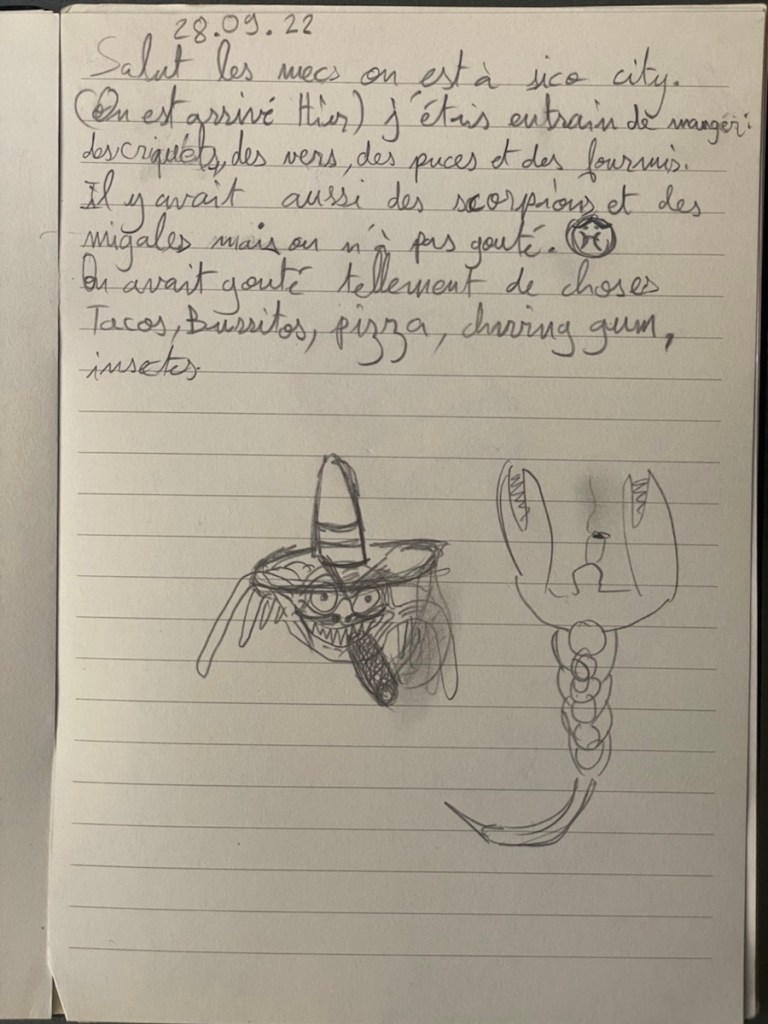 28.09.22
Salut les mecs on est à sico city.
(On est arrivé Hier) j'étris entrain de manger:
des criquets, des vers, des puces et des fourmis.
Il y avait aussi des scorpions et des
migales mais on n'à pas gouté.
On avait gouté tellement de choses
Tacos, Burritos, pizza, chwing gum,
insectes